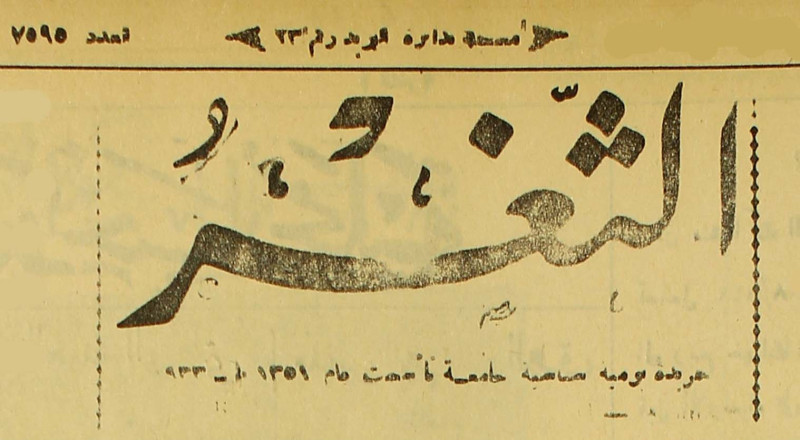 العدد ٧٥٩٥ صندوق البريد رقم ٢٣
الثَّغْرُ
جريدة يومية سياسية جامعة تأسست عام ١٣٥١ هـ - ٩٣٣